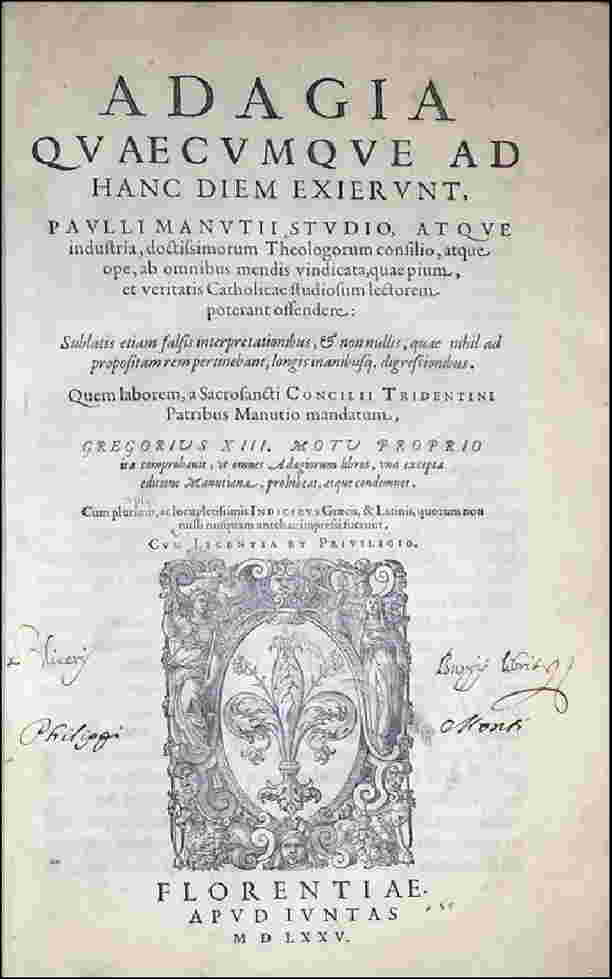 ADAGIA
QVAECVMQVE AD
HANC DIEM EXIERVNT,
PAVLLI MANVTII STVDIO, ATQVE
industria, doctissimorum Theologorum consilio, atque
ope, ab omnibus mendis vindicata, quae pium,
et veritatis Catholicae studiosum lectorem
poterant offendere:
Sublatis etiam falsis interpretationibus, & nonnullis, quae nihil ad
propositam rem pertinebant, longis inanibusq. digressionibus.
Quem laborem, a Sacrosancti CONCILII TRIDENTINI
Patribus Manutio mandatum,
GREGORIVS XIII. MOTV PROPRIO
ita comprobauit, vt omnes Adagiorum libros, vna excepta
editione Manutiana, prohibeat, atque condemnet.
Cum plurimis, ac locupletissimis INDICIBVS Graecis, & Latinis, quorum non
nulli nusquam antehac impressi fuerunt.
CVM LICENTIA ET PRIVILEGIO.
Philippi
FLORENTIAE.
APVD IVNTAS
M D LXXV.